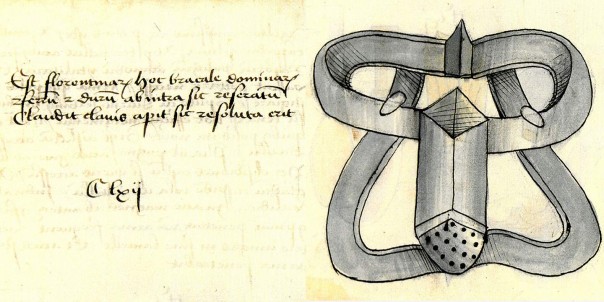 Est florentinar hoc bracale dominar
z ferru z duru ab intra sic reseratu
Claudit clavis apit sic resoluta erit
Clxij